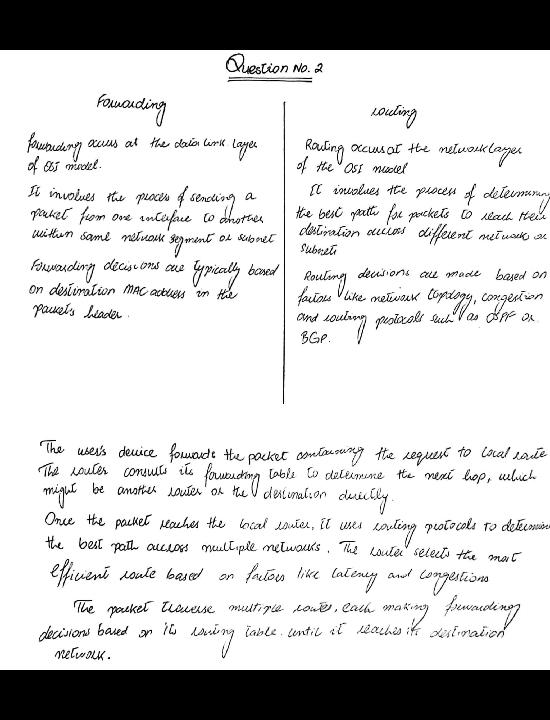 Question No. 2
Forwarding
forwarding occurs at the data link layer
of OSI model.
It involves the process of sending a
packet from one interface to another
within same network segment or subnet
Forwarding decisions are typically based
on destination MAC address in the
packet's header.
routing
Routing occurs at the network layer
of the OSI model
It involves the process of determining
the best path for packets to reach their
destination across different network or
subnets
Routing decisions are made based on
factors like network topology, congestion
and routing protocols such as OSPF or
BGP.
The user's device forwards the packet containing the request to local route
The router consults its forwarding table to determine the next hop, which
might be another router or the destination directly.
Once the packet reaches the local router, It uses routing protocols to determine
the best path across multiple networks. The router selects the most
efficient route based on factors like latency and congestions
The packet traverse multiple routes, each making forwarding
decisions based on its routing table. until it reaches its destination
network.